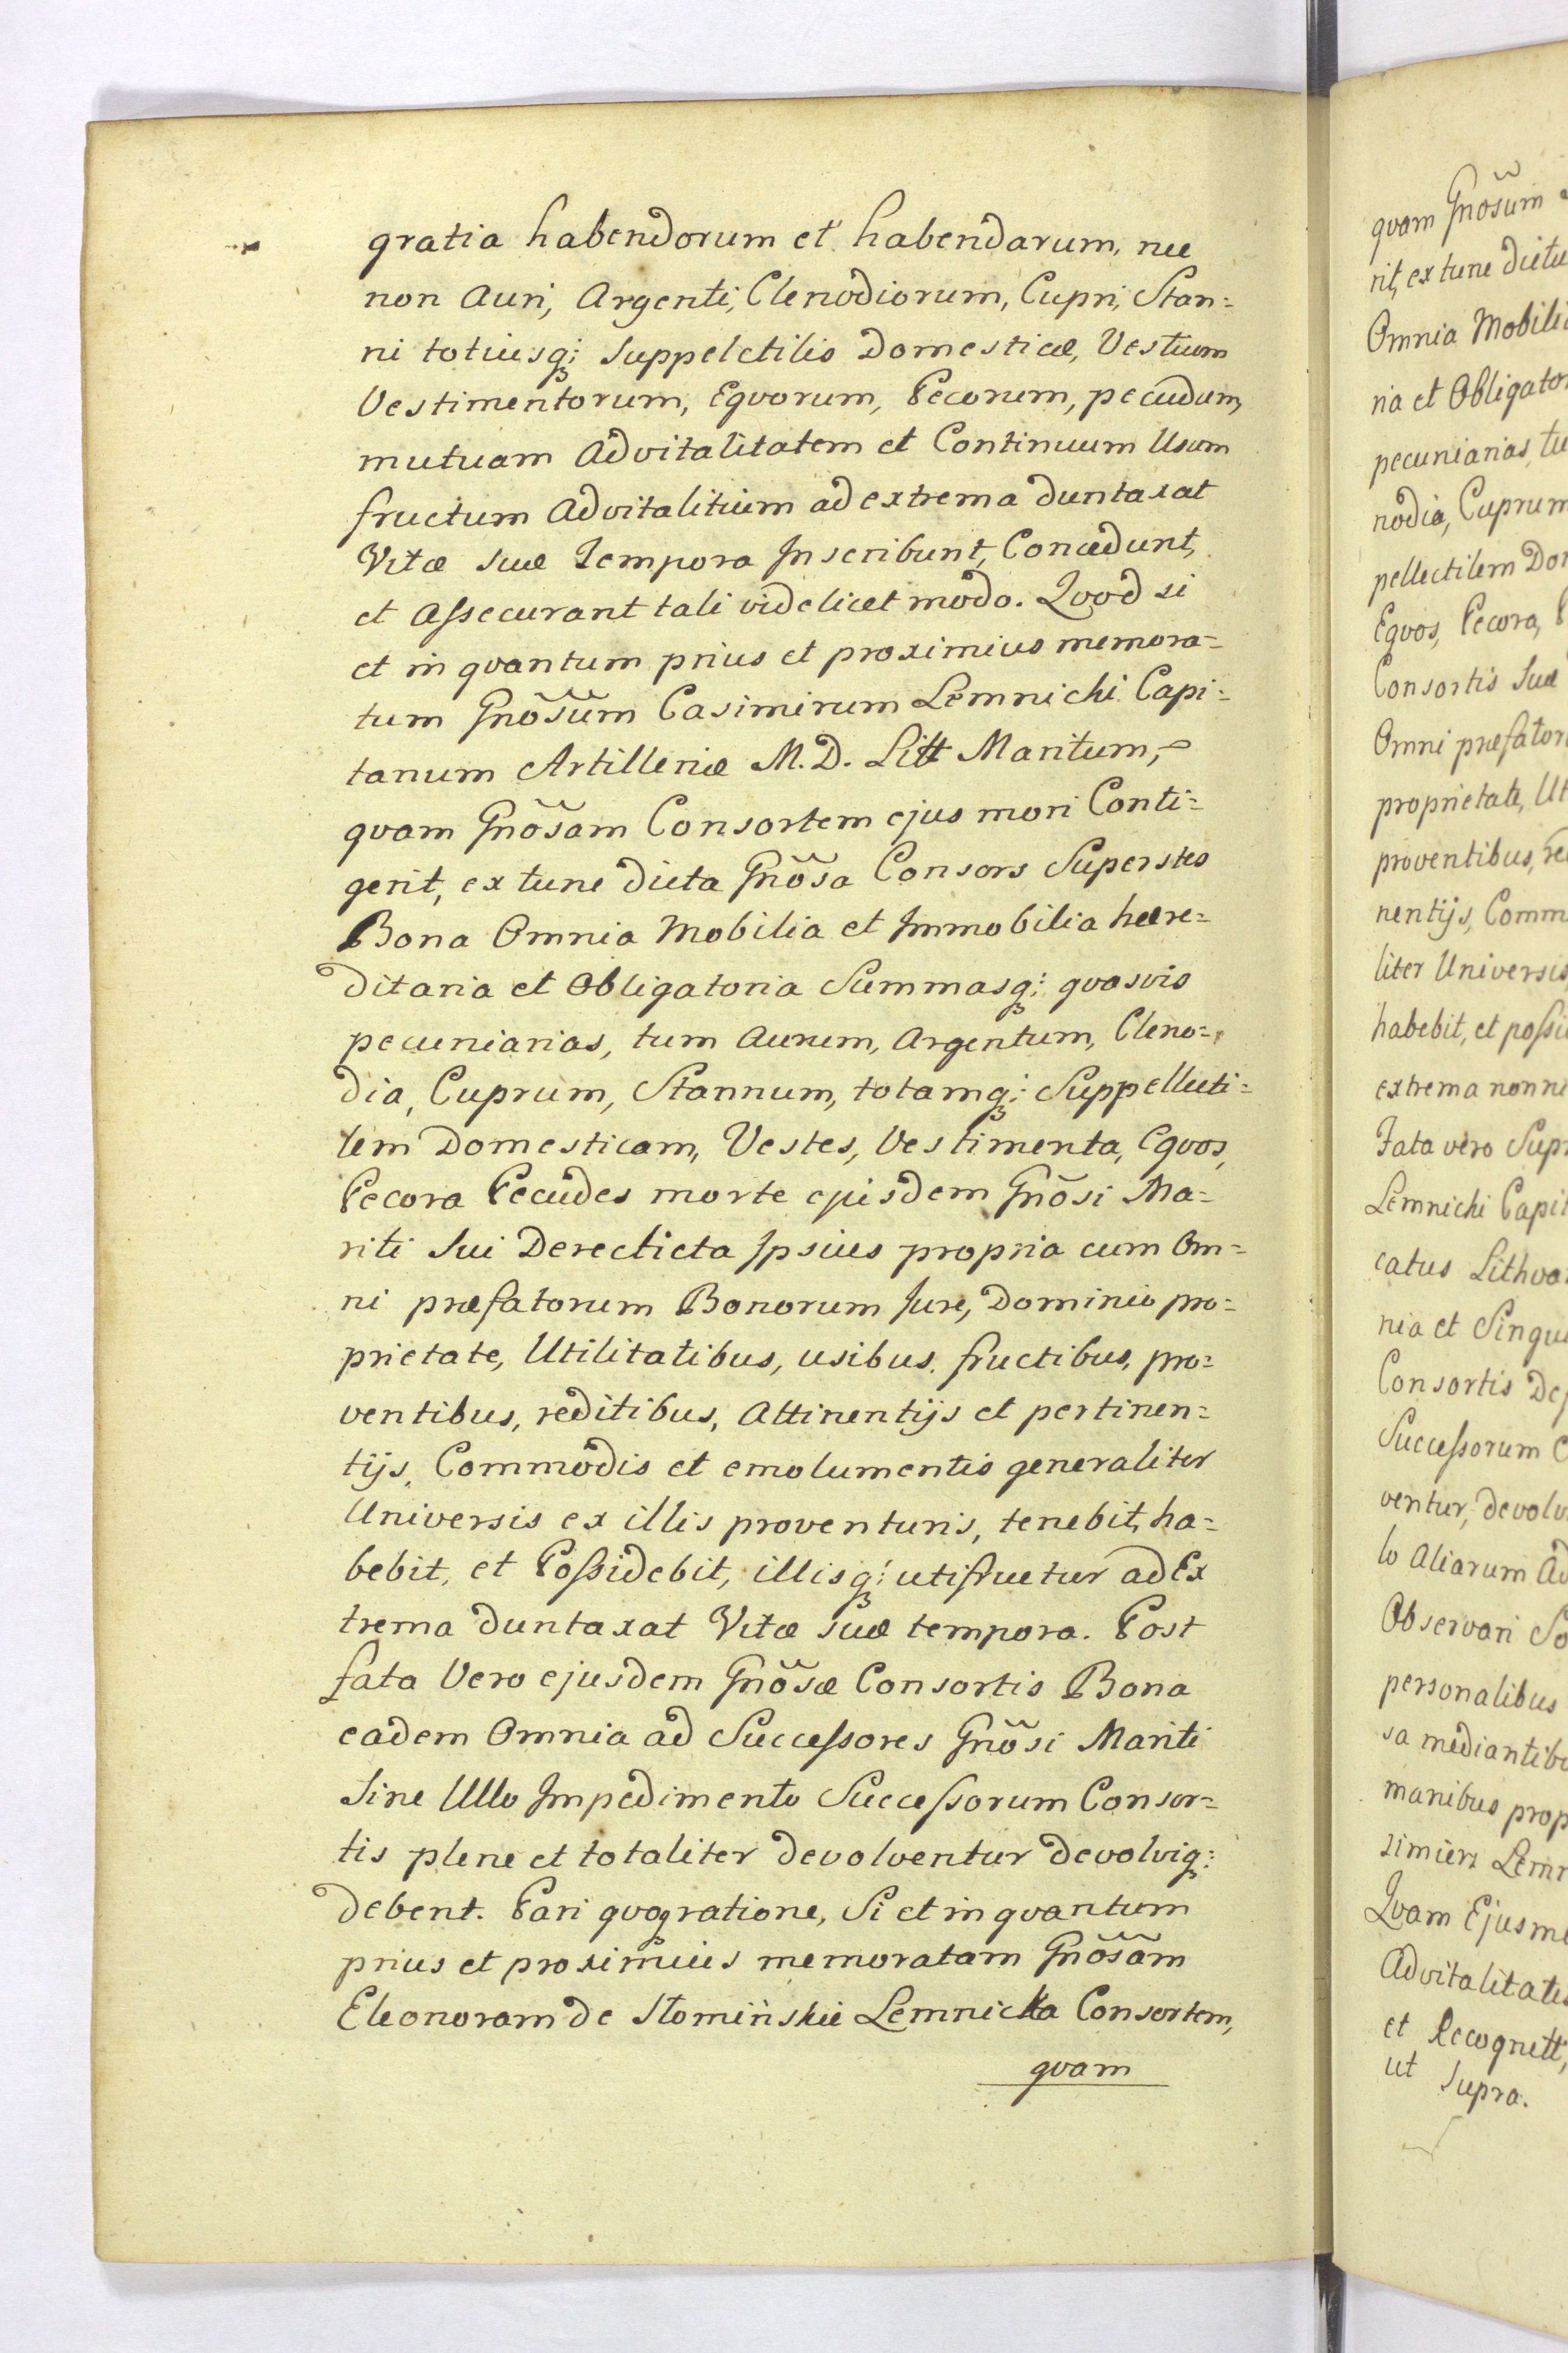 gratia habendorum et habendarum, nec
non Auri, Argenti, Clenodiorum, Cupri, Stan=
ni totiusq; Suppelctilis Domesticæ, Vestium
Vestimentorum, Eqvorum, Pecorum, pecudum,
mutuam Advitalitatem et Continuum Usum
fructum Advitalitium ad extrema duntaxat
Vitæ suæ Tempora Inscribunt, Concedunt,
et Assecurant tali videlicet modo. Qvod si
et in qvantum prius et proximius memora=
tum Gnõsũm Casimirum Lemnichi Capi=
tanum Artilleriæ M. D. Litt Maritum,
qvam Gnõsam Consortem ejus mori Conti=
gerit, ex tunc dicta Gnõsa Consors Superstes
Bona Omnia Mobilia et Immobilia hære=
ditaria et Obligatoria Summasq; qvasvis
pecuniarias, tum Aurum, Argentum, Cleno=
dia, Cuprum, Stannum, totamq; Suppellecti=
lem Domesticam, Vestes, Vestimenta, Eqvos,
Pecora Pecudes morte ejusdem Gnõsi Ma=
riti Sui Derecticta Ipsius propria cum Om=
ni præfatorum Bonorum Jure, Dominio pro=
prietate, Utilitatibus, usibus, fructibus, pro=
ventibus, reditibus, Attinentijs et pertinen=
tijs, Commodis et emolumentis generaliter
Universis ex illis proventuris, tenebit, ha=
bebit, et Possidebit, illisq; utifruetur ad Ex
trema duntaxat Vitæ suæ tempora. Post
fata Vero ejusdem Gnõsæ Consortis Bona
eadem Omnia ad Successores Gnõsi Mariti
Sine Ullo Impedimento Successorum Consor=
tis plene et totaliter devolventur devolviq;
debent. Pari qvoq ratione, Si et in qvantum
prius et proximius memoratam Gnõsãm
Eleonoram de Słomińskie Lemnicka Consortem,
qvam
qvam Gnõsum
rit, ex tunc dictu
Omnia Mobili
ria et Obligator
pecuniarias, tu
nodia, Cuprum
pellectilem Dom
Eqvos, Pecora, P
Consortis Suæ
Omni præfator
proprietate, Ut
proventibus, re
nentijs, Comm
liter Universis
habebit, et possi
extrema non ni
Fata vero Supr
Lemnichi Capit
catus Lithva
nia et Singu
Consortis De
Successorum C
ventur, devolv
lo Aliarum Ad
Observari So
personalibus
sa mediantibu
manibus prop
simierz Lemn
Qvam Ejusmo
Advitalitatis
et Recognitt,
ut Supra.